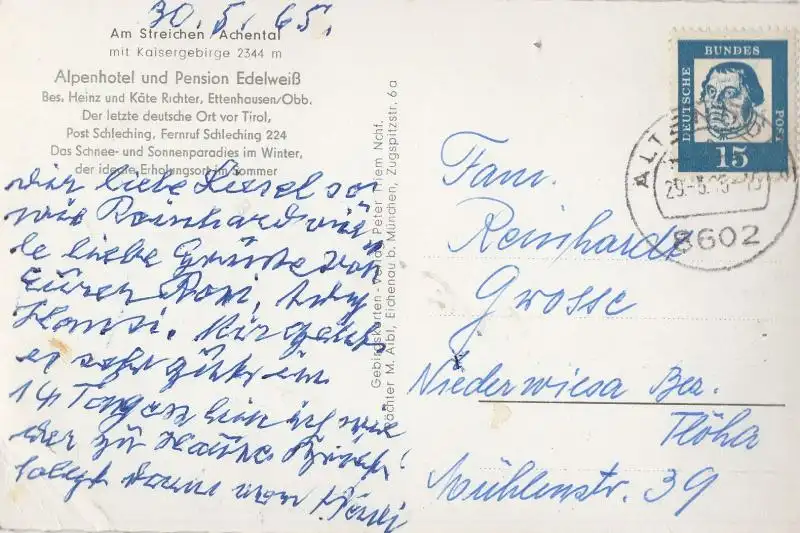 30.5.65.
Am Streichen / Achental
mit Kaisergebirge 2344 m
Alpenhotel und Pension Edelweiß
Bes. Heinz und Käte Richter, Ettenhausen/Obb.
Der letzte deutsche Ort vor Tirol,
Post Schleching, Fernruf Schleching 224
Das Schnee- und Sonnenparadies im Winter,
der ideale Erholungsort im Sommer
liebe so
wie Reinhard viele
liebe Grüße von
Eurer
Hansi. Mir geht
es sehr gut in
14 Tagen bin ich wie
der zu Hause
folgt dann von Hansi
Gebirgskarten - Verlag Peter Friem Nchf.
Töchter M. Aibl, Eichenau b. München, Zugspitzstr. 6a
DEUTSCHE BUNDESPOST
15
ALT
29.-5.65
8602
Fam.
Reinhardt
Grosse
Niederwiesa Bez.
Flöha
Mühlenstr. 39